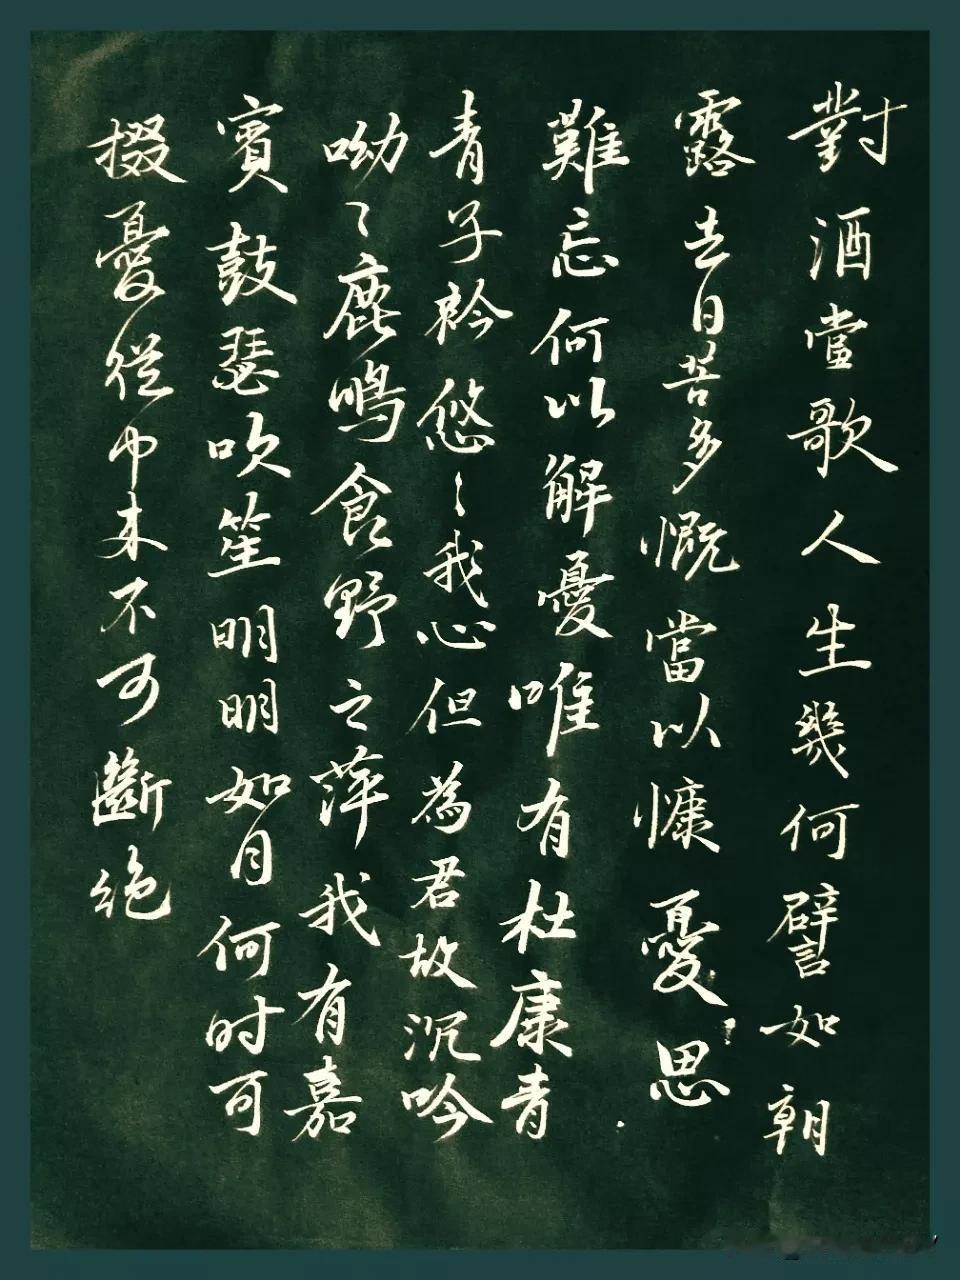 對酒當歌人生幾何譬如朝
露去日苦多慨當以慷憂思
難忘何以解憂唯有杜康青
青子衿悠〻我心但為君故沉吟
呦〻鹿鳴食野之萍我有嘉
賓鼓瑟吹笙明明如月何时可
掇憂從中来不可斷絶